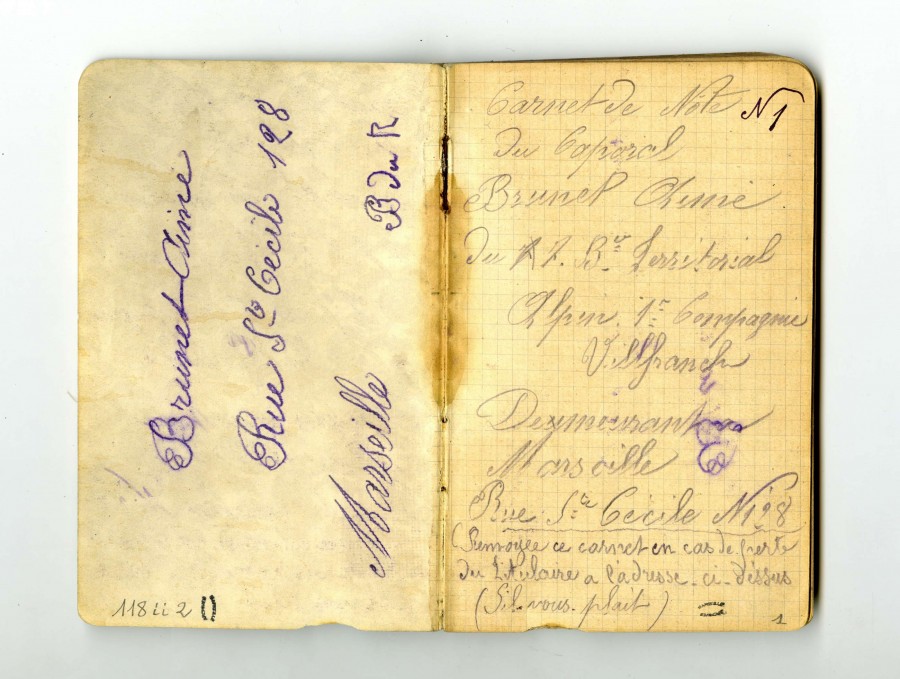 Brunet Aimé
Rue Ste Cécile 128
Marseille B du R
118 ii 2
Carnet de Note N 1
du Caporal
Brunet Aimé
du 7. Bon Territorial
Alpin. 1re Compagnie
Villfranch
Deumeurant a
Marseille
Rue Ste Cécile N 128
(Renvoyée ce carnet en cas de perte
du Titulaire a l'adresse. ci. dessus
(S'il. vous. plait)
1